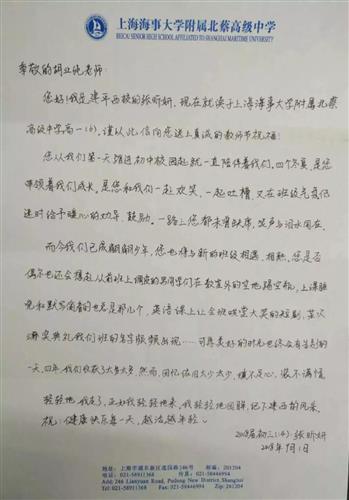 上海海事大学附属北蔡高级中学
BEICAI SENIOR HIGH SCHOOL AFFILIATED TO SHANGHAI MARITIME UNIVERSITY
敬的胡业纯老师:
您好!我是建平西校的张昕妍,现在就读于上海海事大学附属北蔡
高级中学高一(6),谨以此信向您送上真诚的教师节祝福!
您从我们第一天踏进初中校园起就一直陪伴着我们,四个冬夏,是您
带领着我们成长,是您和我们一起欢笑、一起吐槽,又在班级气氛低
迷时给予暖心的劝导、鼓励。一路上您都未曾缺席,笑声与泪水同在。
而今我们已成翩翩少年,您也将与新的班级相遇、相熟,您是否
偶尔也还会想起从前班上调皮的男同学们在教室外的空地踢空瓶,上课睡
觉和默写偷看的也总是那几个,英语课上让全班哄堂大笑的短剧,某次
典礼我们班的名字频频出现……可再美好的时光也终会有告别的
一天,四年,我们收获了太多太多,然而,回忆依旧太少太少,嫌不足心、装不满情
轻轻地我走了,正如我轻轻地来,我轻轻地回眸,记下建西的风采。
祝:健康快乐每一天,越活越年轻~
2018届初三(4)张昕妍
2018年9月1日
地址:上海市浦东新区莲园路246号 邮编:201204
电话:021-58911368 传真:021-58446994
Add: 246 Lianyuan Road, Pudong New District, Shanghai
Tel: 021-58911368 Fax: 021-58446994 Zip: 201204